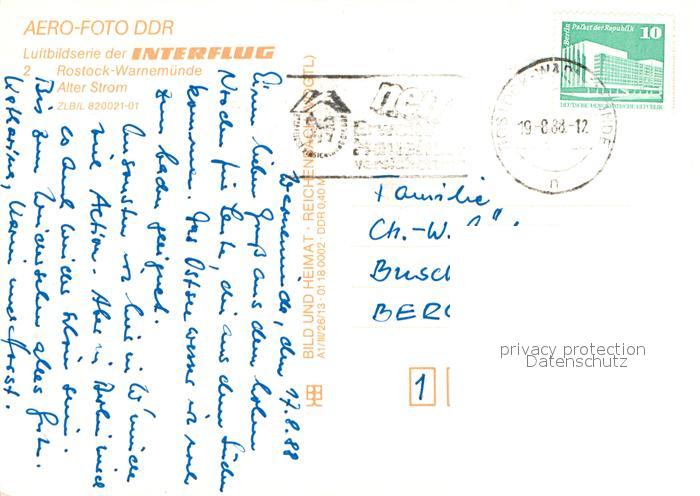 AERO-FOTO DDR
Luftbildserie der INTERFLUG
2 Rostock-Warnemünde
Alter Strom
ZLB/L 820021-01
Berlin, Palast der Republik 10
DEUTSCHE DEMOKRATISCHE REPUBLIK
19-8.88.-12
n
BILD UND HEIMAT · REICHENBACH (VOGTL)
A1/III/26/13 · 01 18 0002 · DDR 0,40 M
Warnemünde, den 17.8.88
Einen lieben Gruß aus dem hohen
Norden für Leute, die aus dem Süden
kommen. Das Ostseewasser ist noch
zum baden geeignet.
Ansonsten ist hier in W'münde
viel Action. Aber in Berlin wird
es auch wieder schön sein.
Bis zum Wiedersehen alles Gute.
Katharina,
Familie
Ch.-W.
Busch
BERG
1
privacy protection
Datenschutz